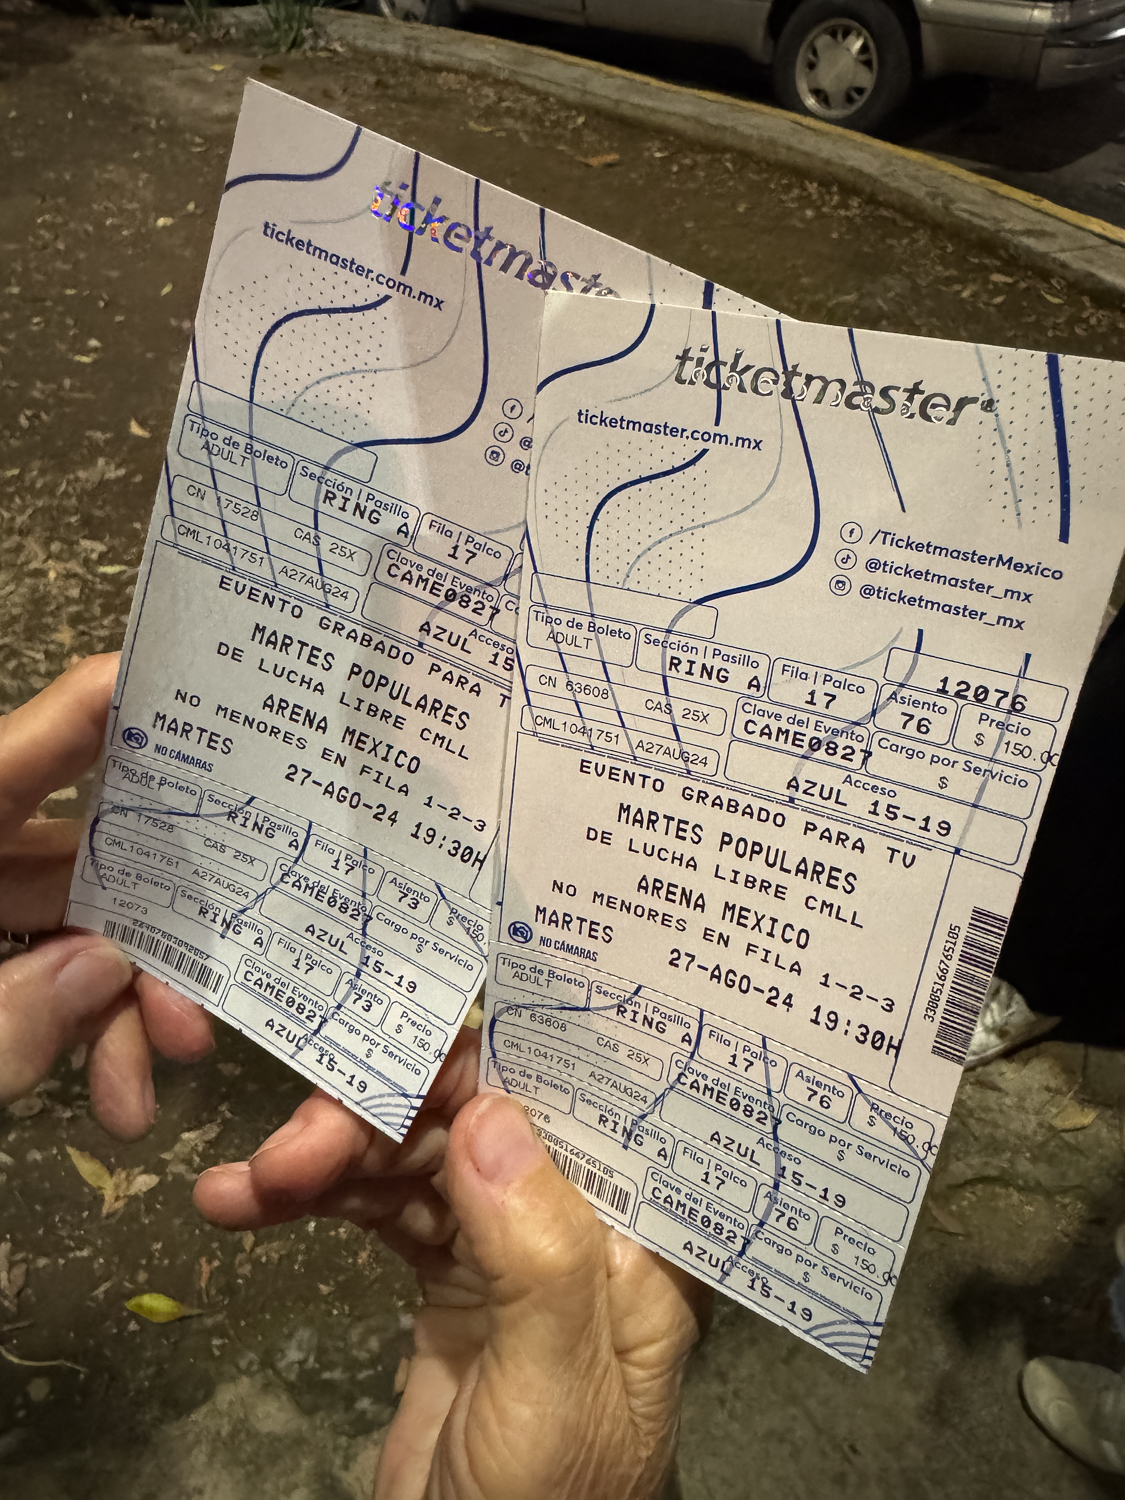 ticketmaster
ticketmaster.com.mx
Tipo de Boleto
ADULT
Sección | Pasillo
RING A
Fila | Palco
17
CN 17528
CAS 25X
Clave del Evento
CAME0827
CML1041751
A27AUG24
Acceso
AZUL 15
EVENTO GRABADO PARA T
MARTES POPULARES
DE LUCHA LIBRE CMLL
ARENA MEXICO
NO MENORES EN FILA 1-2-3
MARTES
27-AGO-24 19:30H
NO CÁMARAS
Tipo de Boleto
ADULT
Sección | Pasillo
RING A
Fila | Palco
17
Asiento
73
Precio
CN 17528
CAS 25X
Clave del Evento
CAME0827
CML1041751
A27AUG24
Acceso
AZUL 15-19
Tipo de Boleto
ADULT
Sección | Pasillo
RING A
Fila | Palco
17
Asiento
73
Precio
$ 150.00
12073
Clave del Evento
CAME0827
Cargo por Servicio
$
Acceso
AZUL 15-19
ticketmaster
ticketmaster.com.mx
/TicketmasterMexico
@ticketmaster_mx
@ticketmaster_mx
12076
Tipo de Boleto
ADULT
Sección | Pasillo
RING A
Fila | Palco
17
Asiento
76
Precio
$ 150.00
CN 63608
CAS 25X
Clave del Evento
CAME0827
Cargo por Servicio
$
CML1041751
A27AUG24
Acceso
AZUL 15-19
EVENTO GRABADO PARA TV
MARTES POPULARES
DE LUCHA LIBRE CMLL
ARENA MEXICO
NO MENORES EN FILA 1-2-3
MARTES
27-AGO-24 19:30H
NO CÁMARAS
33005166765105
Tipo de Boleto
ADULT
Sección | Pasillo
RING A
Fila | Palco
17
Asiento
76
Precio
$ 150.00
CN 63608
CAS 25X
Clave del Evento
CAME0827
Cargo por Servicio
$
CML1041751
A27AUG24
Acceso
AZUL 15-19
Tipo de Boleto
ADULT
Sección | Pasillo
RING A
Fila | Palco
17
Asiento
76
Precio
$ 150.00
2076
33005166765105
Clave del Evento
CAME0827
Cargo por Servicio
$
Acceso
AZUL 15-19